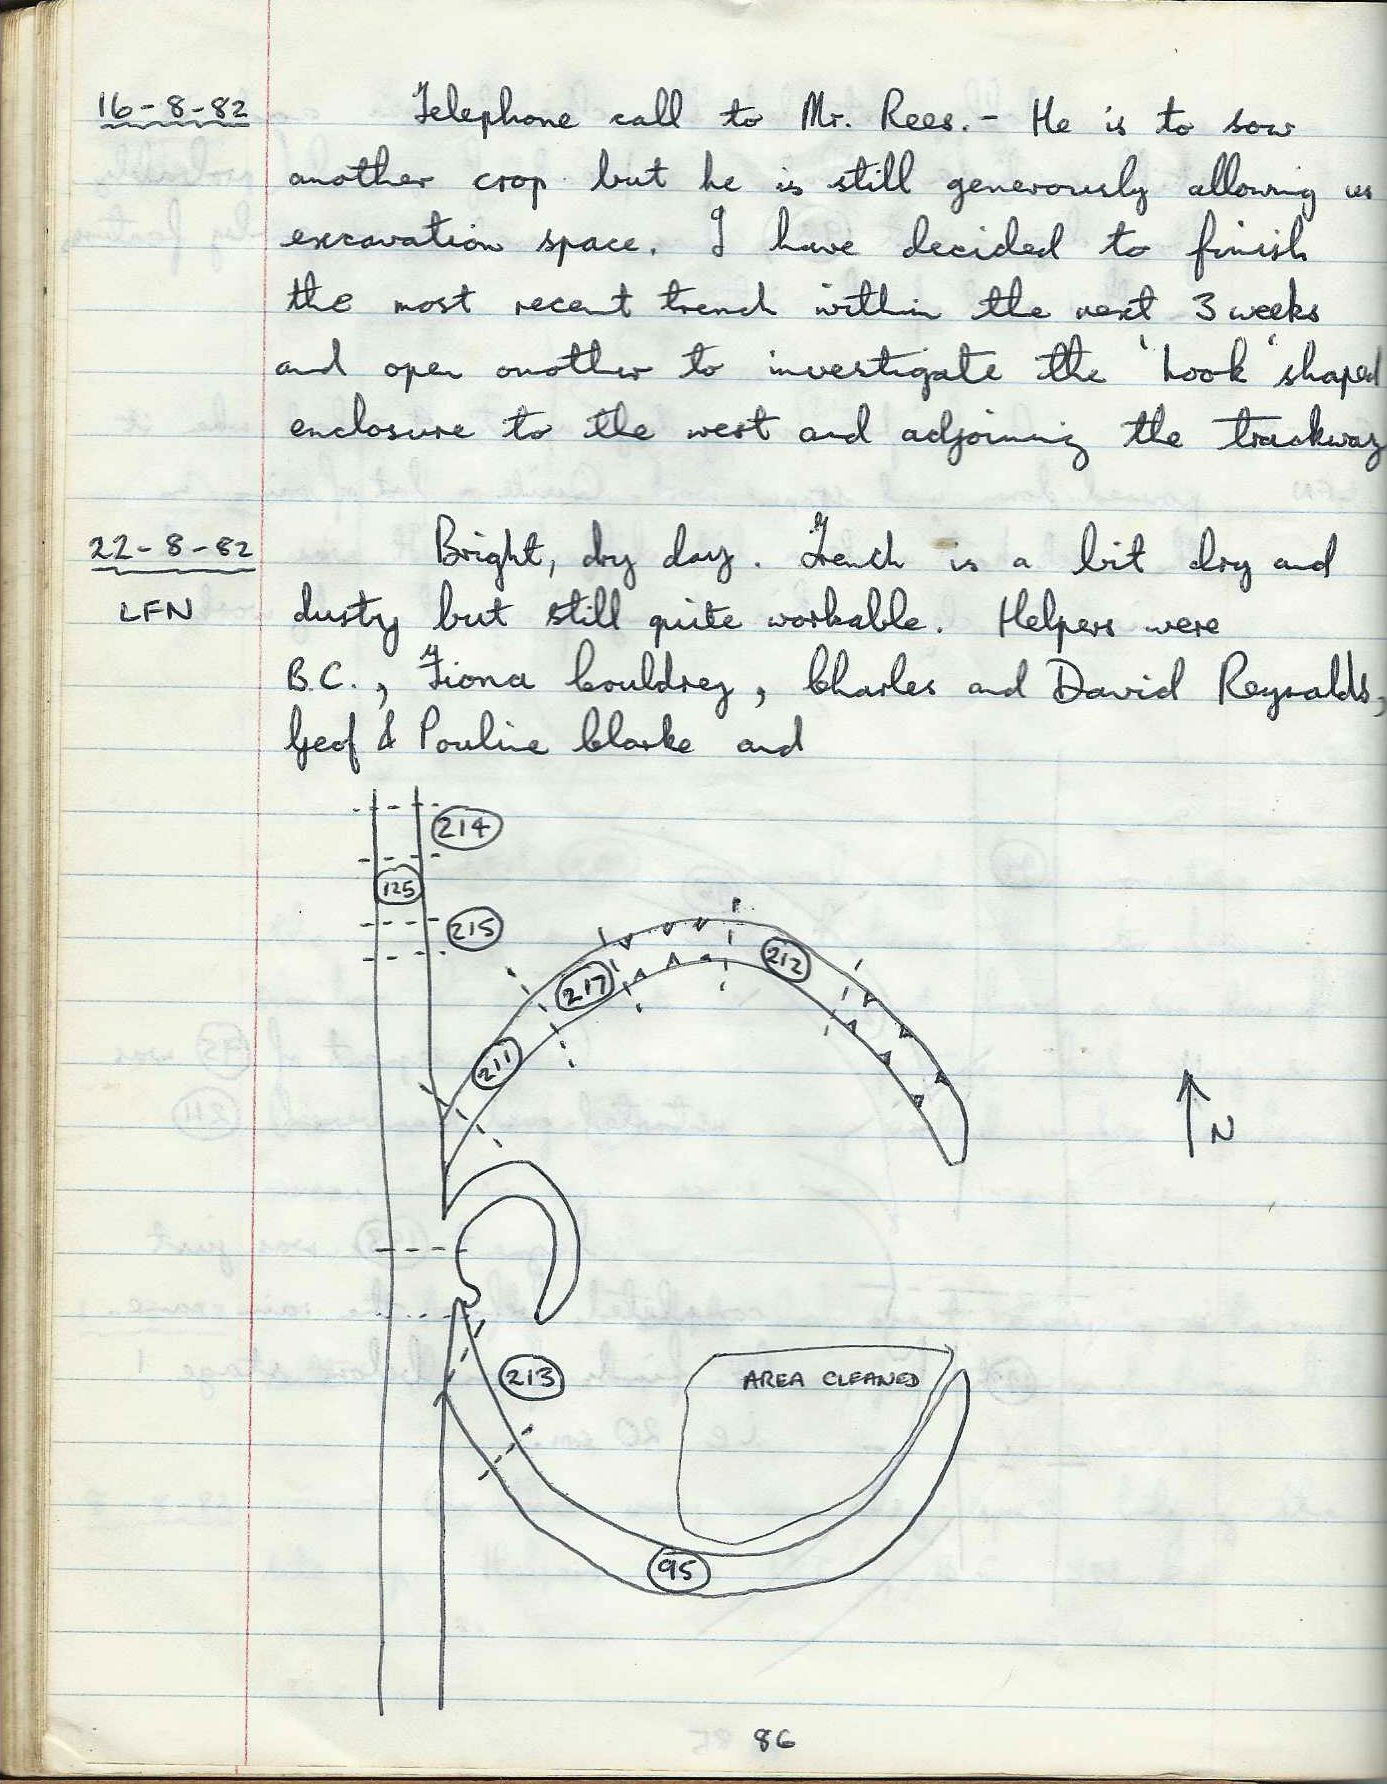 16-8-82 Telephone call to Mr. Rees. - He is to sow
another crop but he is still generously allowing us
excavation space. I have decided to finish
the most recent trench within the next 3 weeks
and open another to investigate the 'hook' shaped
enclosure to the west and adjoining the trackway
22-8-82 Bright, dry day. Trench is a bit dry and
LFN dusty but still quite workable. Helpers were
B.C., Fiona Couldrey, Charles and David Reynolds,
Geof & Pauline Clarke and
214
125
215
212
217
211
N
213
AREA CLEANED
95
86